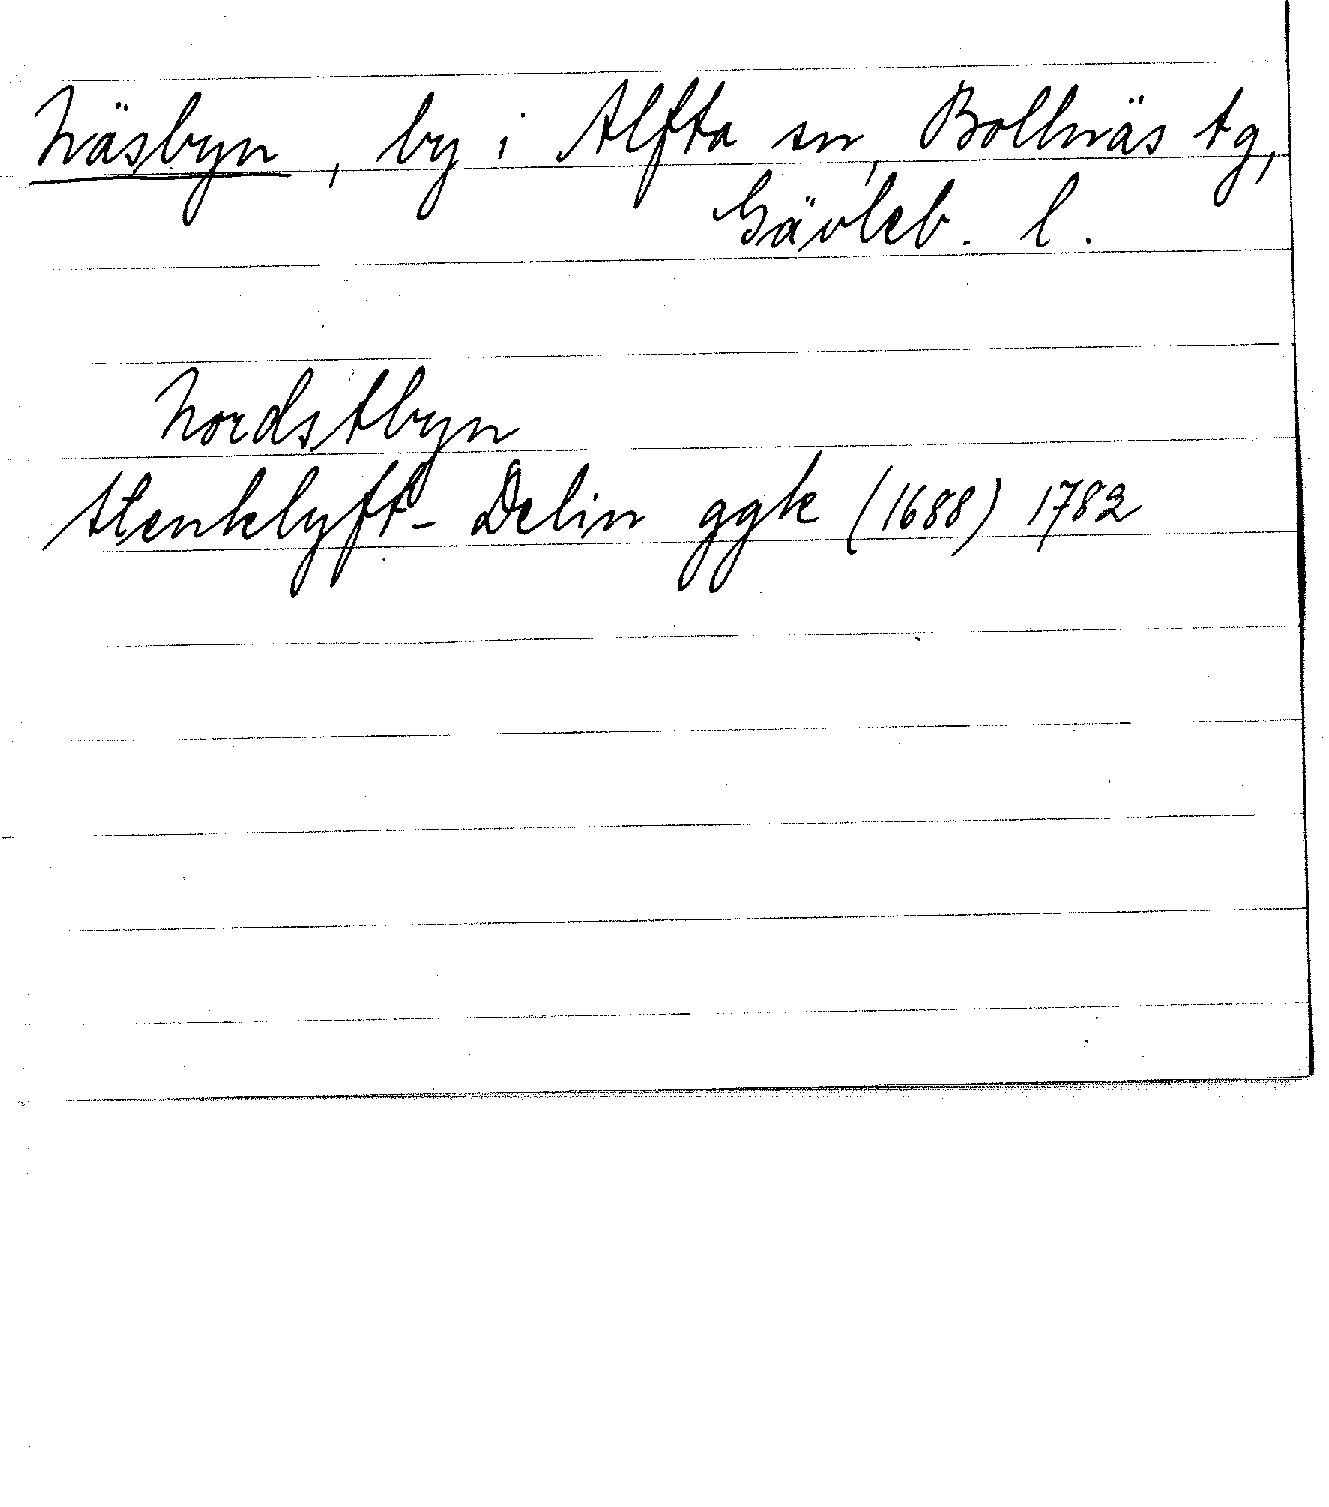 Näsbyn, by i Alfta sn, Bollnäs tg,
Gävleb. l.
Nordstbyn
Stenklyft- Delin ggk (1688) 1782